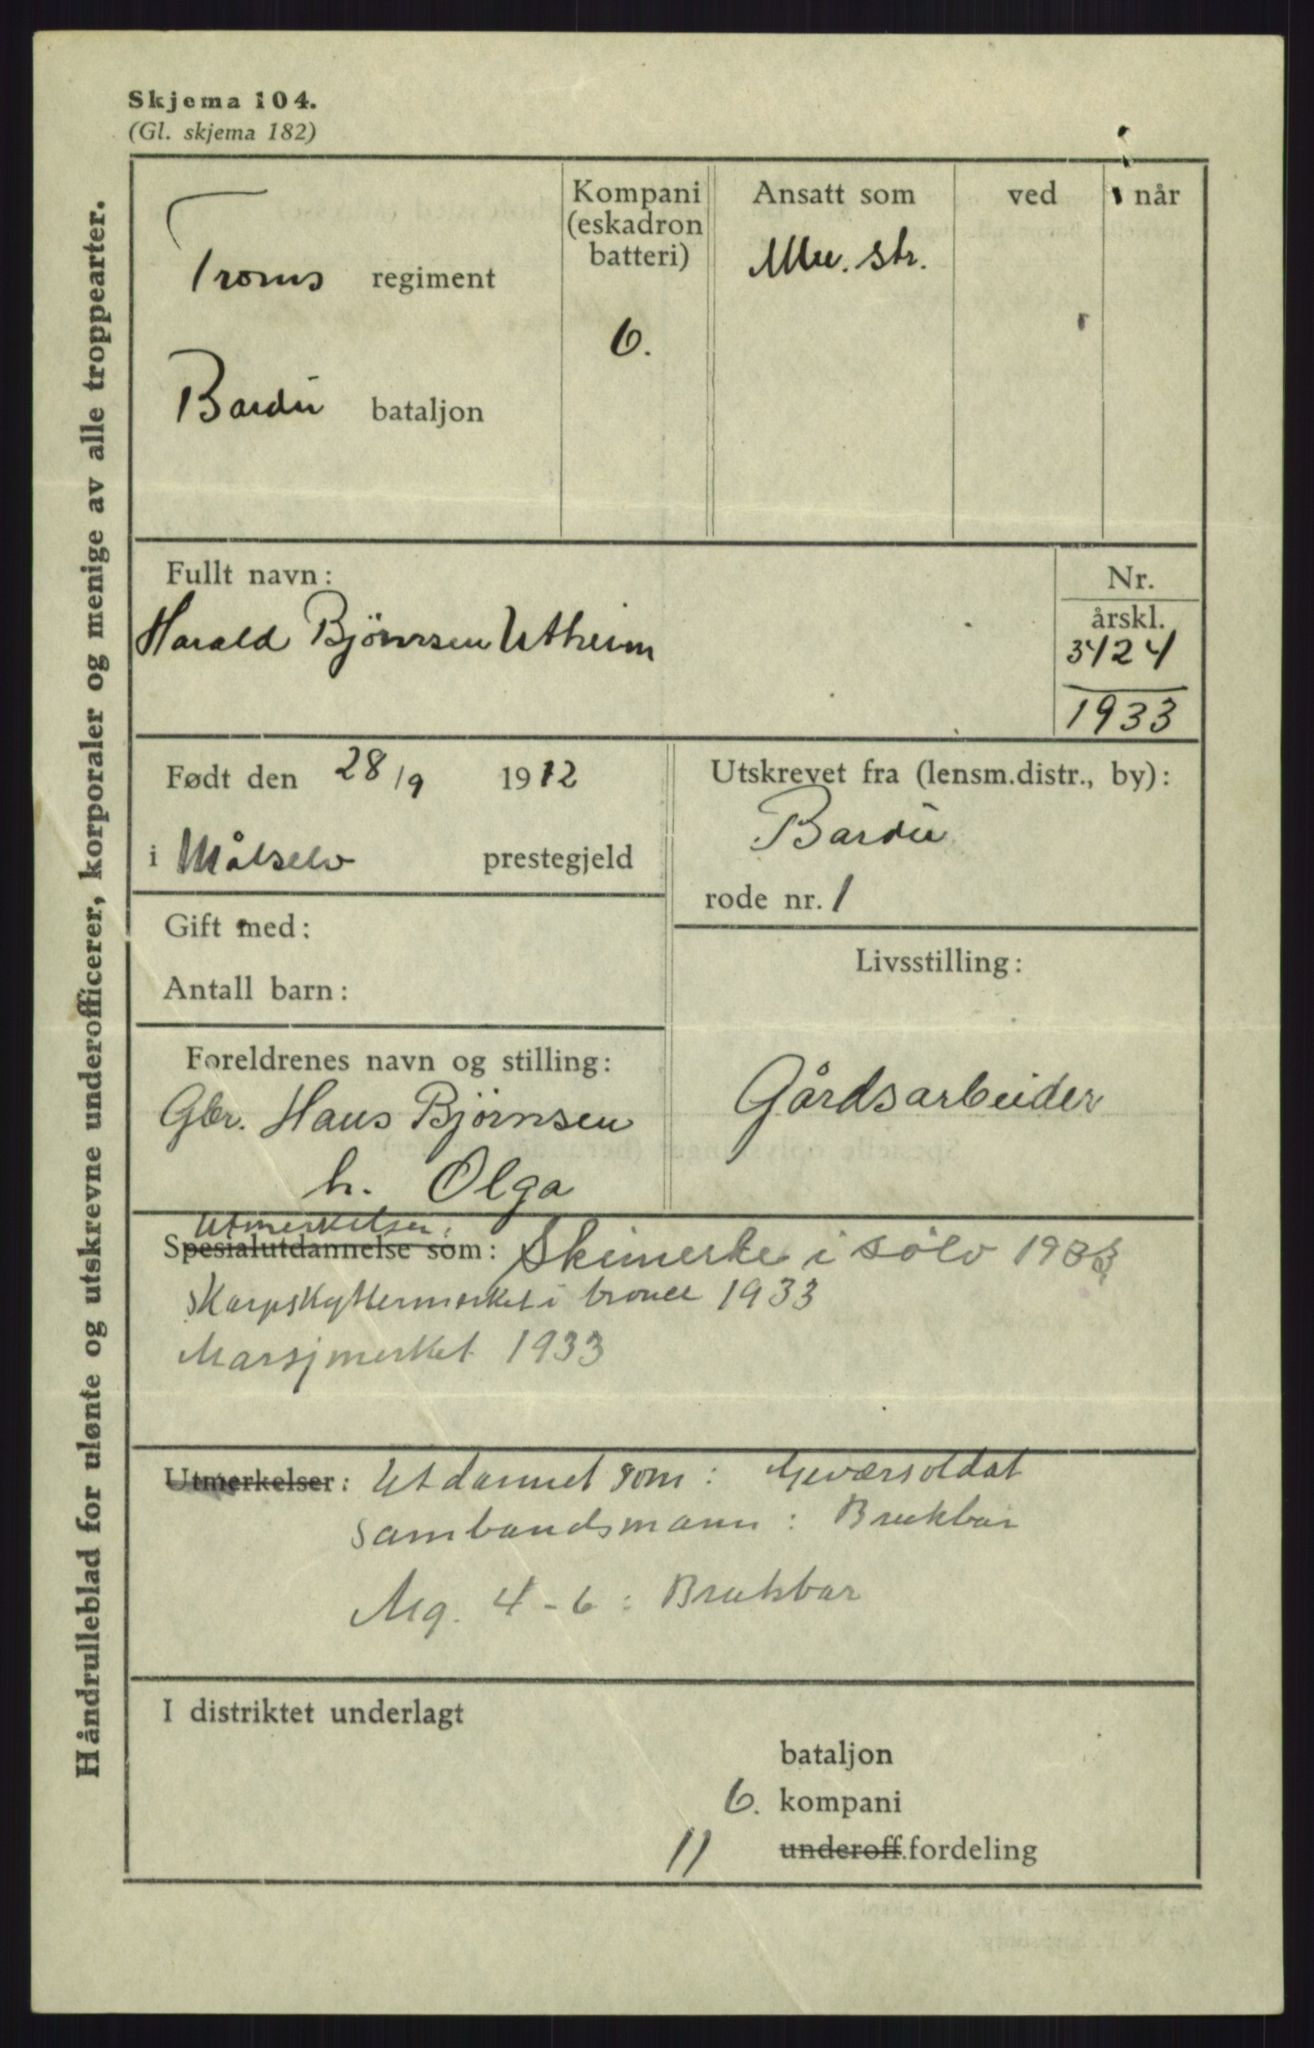 Skjema 104.
(Gl. skjema 182)
Håndrulleblad for ulønte og utskrevne underofficerer, korporaler og menige av alle troppearter.
Troms regiment
Bardu bataljon
Kompani
(eskadron
batteri)
6.
Ansatt som
str.
ved
når
Fullt navn:
Harald Bjørnsen Utheim
Nr.
årskl.
3424
1933
Født den 28/9 1912
i Målselv prestegjeld
Utskrevet fra (lensm.distr., by):
Bardu
rode nr. 1
Gift med:
Antall barn:
Livsstilling:
Gårdsarbeider
Foreldrenes navn og stilling:
Gbr. Hans Bjørnsen
h. Olga
Utmerkelser:
Spesialutdannelse som: Skimerke i sølv 1933
Skarpskyttermerket i bronce 1933
Marsjmerket 1933
Utmerkelser: Utdannet som: Geværsoldat
Sambandsmann: Brukbar
Mg. 4-6: Brukbar
I distriktet underlagt
bataljon
6. kompani
11 underoff.fordeling